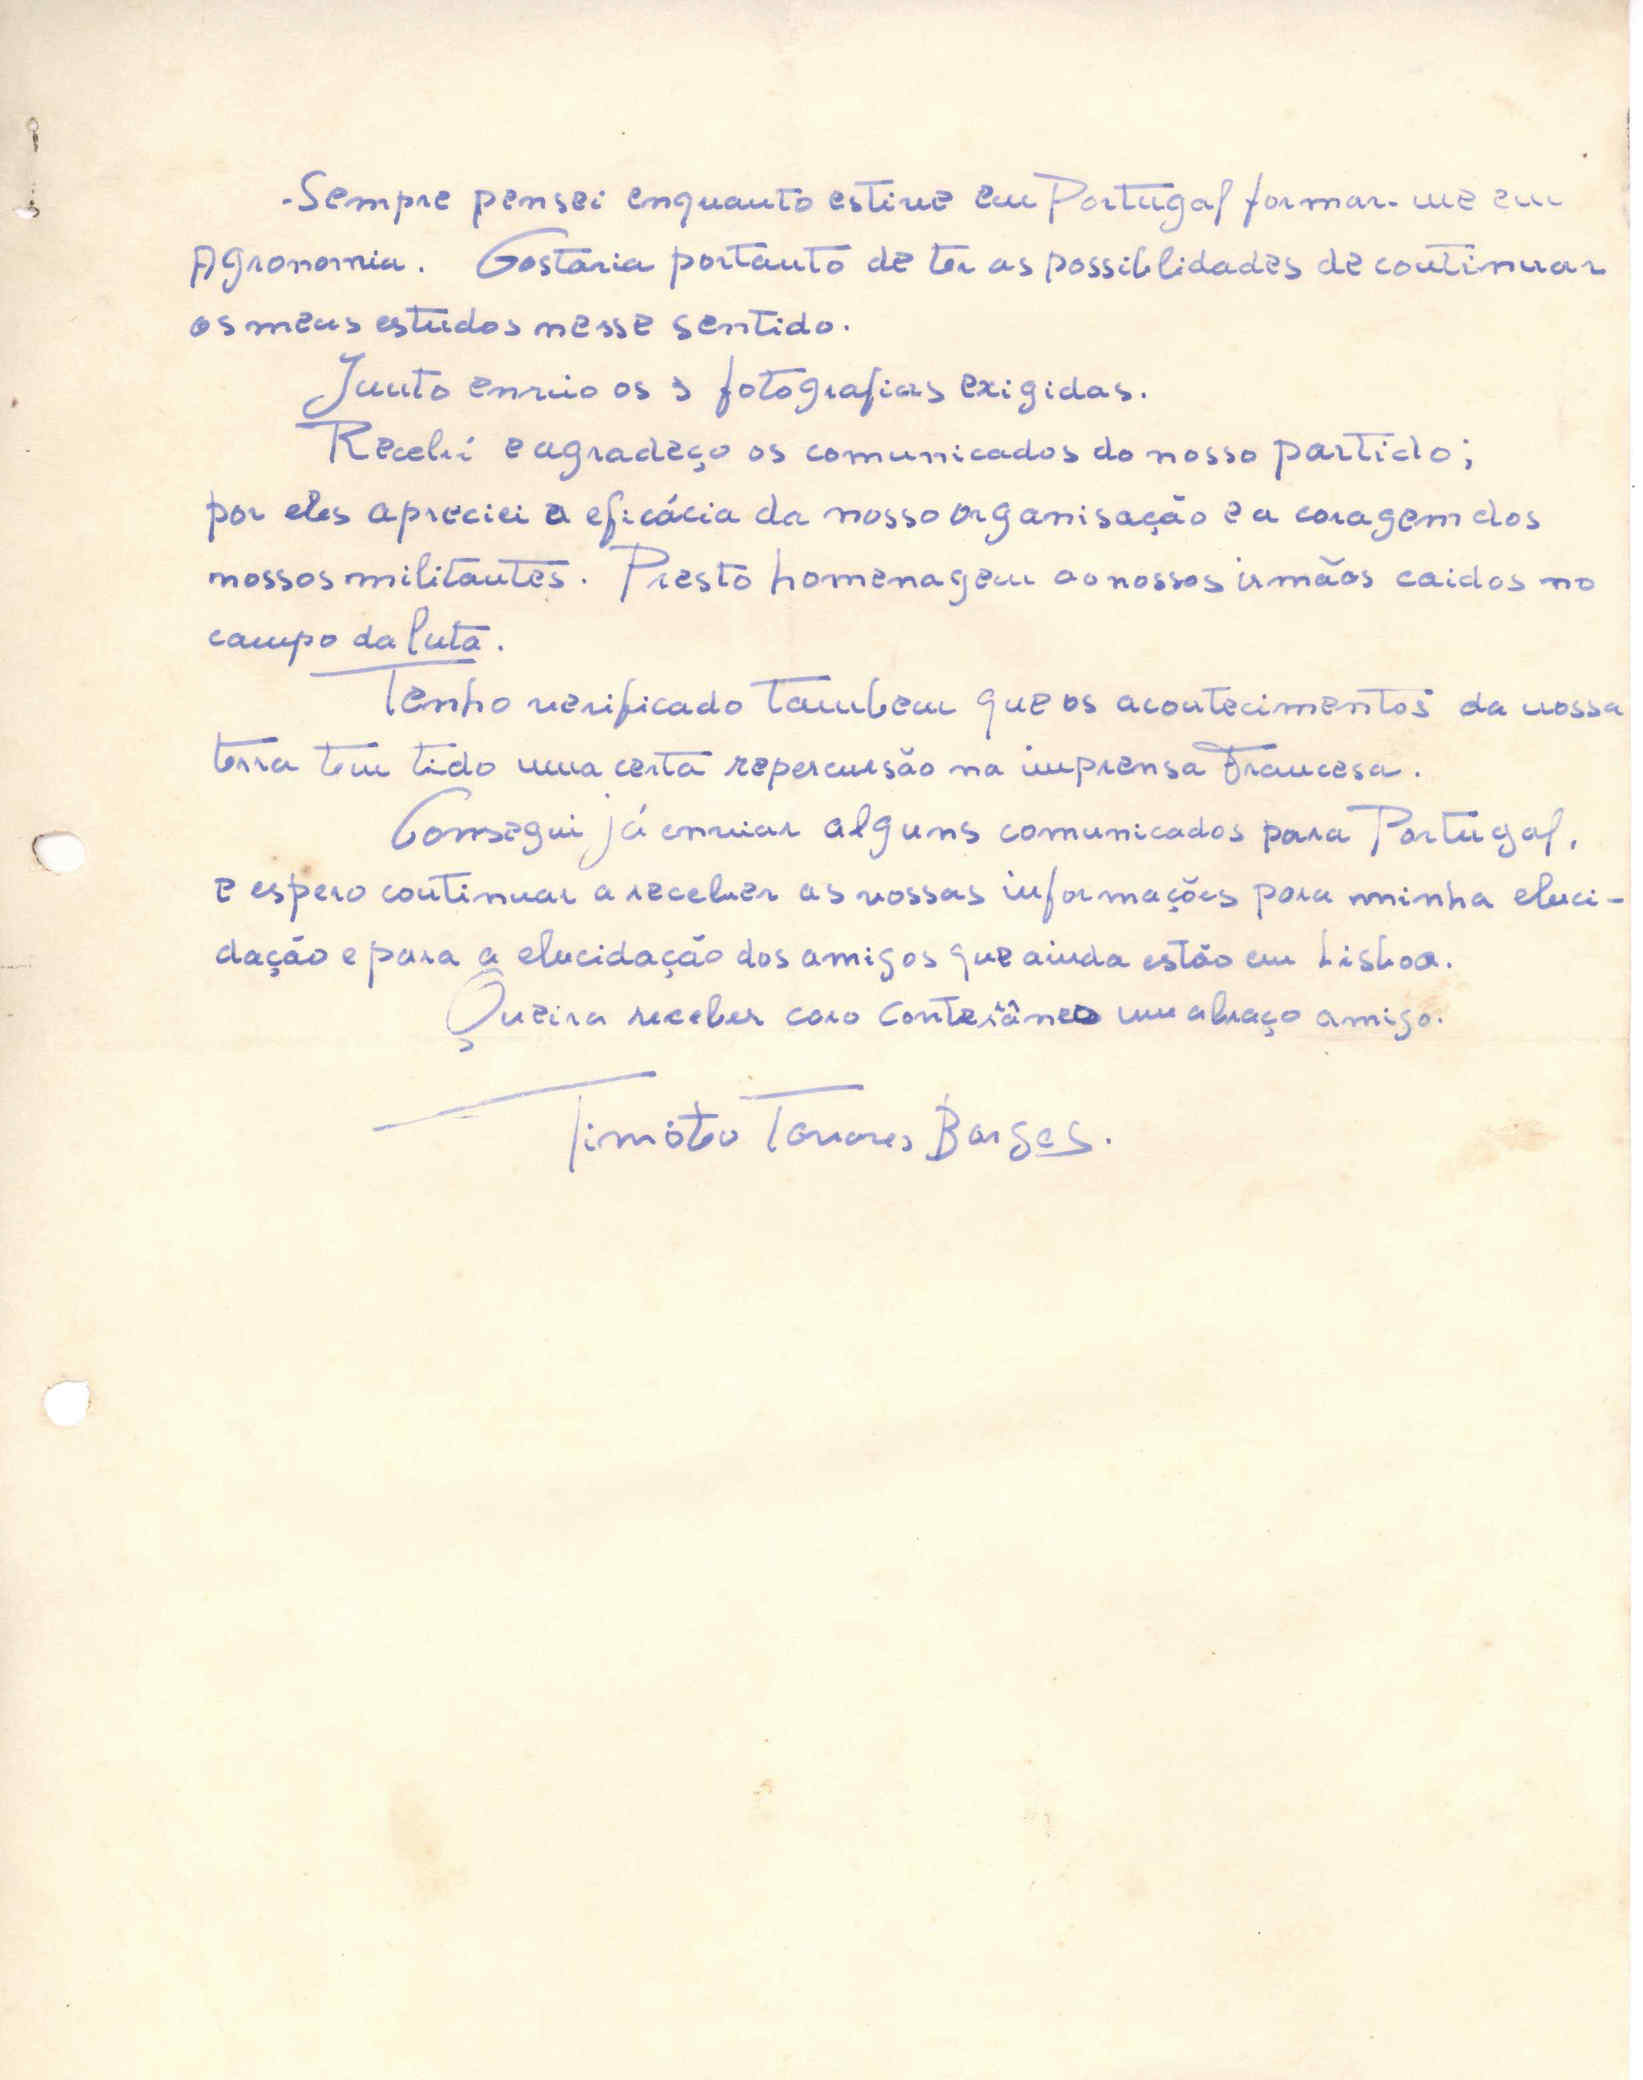 -Sempre pensei enquanto estive em Portugal formar-me em
Agronomia. Gostaria portanto de ter as possiblidades de continuar
os meus estudos nesse sentido.
Junto envio os 3 fotografias exigidas.
Recebi e agradeço os comunicados do nosso partido;
por eles apreciei a eficácia da nosso organisação e a coragem dos
nossos militantes. Presto homenagem ao nossos irmãos caidos no
campo da luta.
Tenho verificado tambem que os acontecimentos da nossa
terra tem tido uma certa repercursão na imprensa Francesa.
Consegui já enviar alguns comunicados para Portugal,
e espero continuar a receber as vossas informações para minha eluci-
dação e para a elucidação dos amigos que ainda estão em Lisboa.
Queira receber caro conterrâneo um abraço amigo.
Timóteo Tavares Borges.